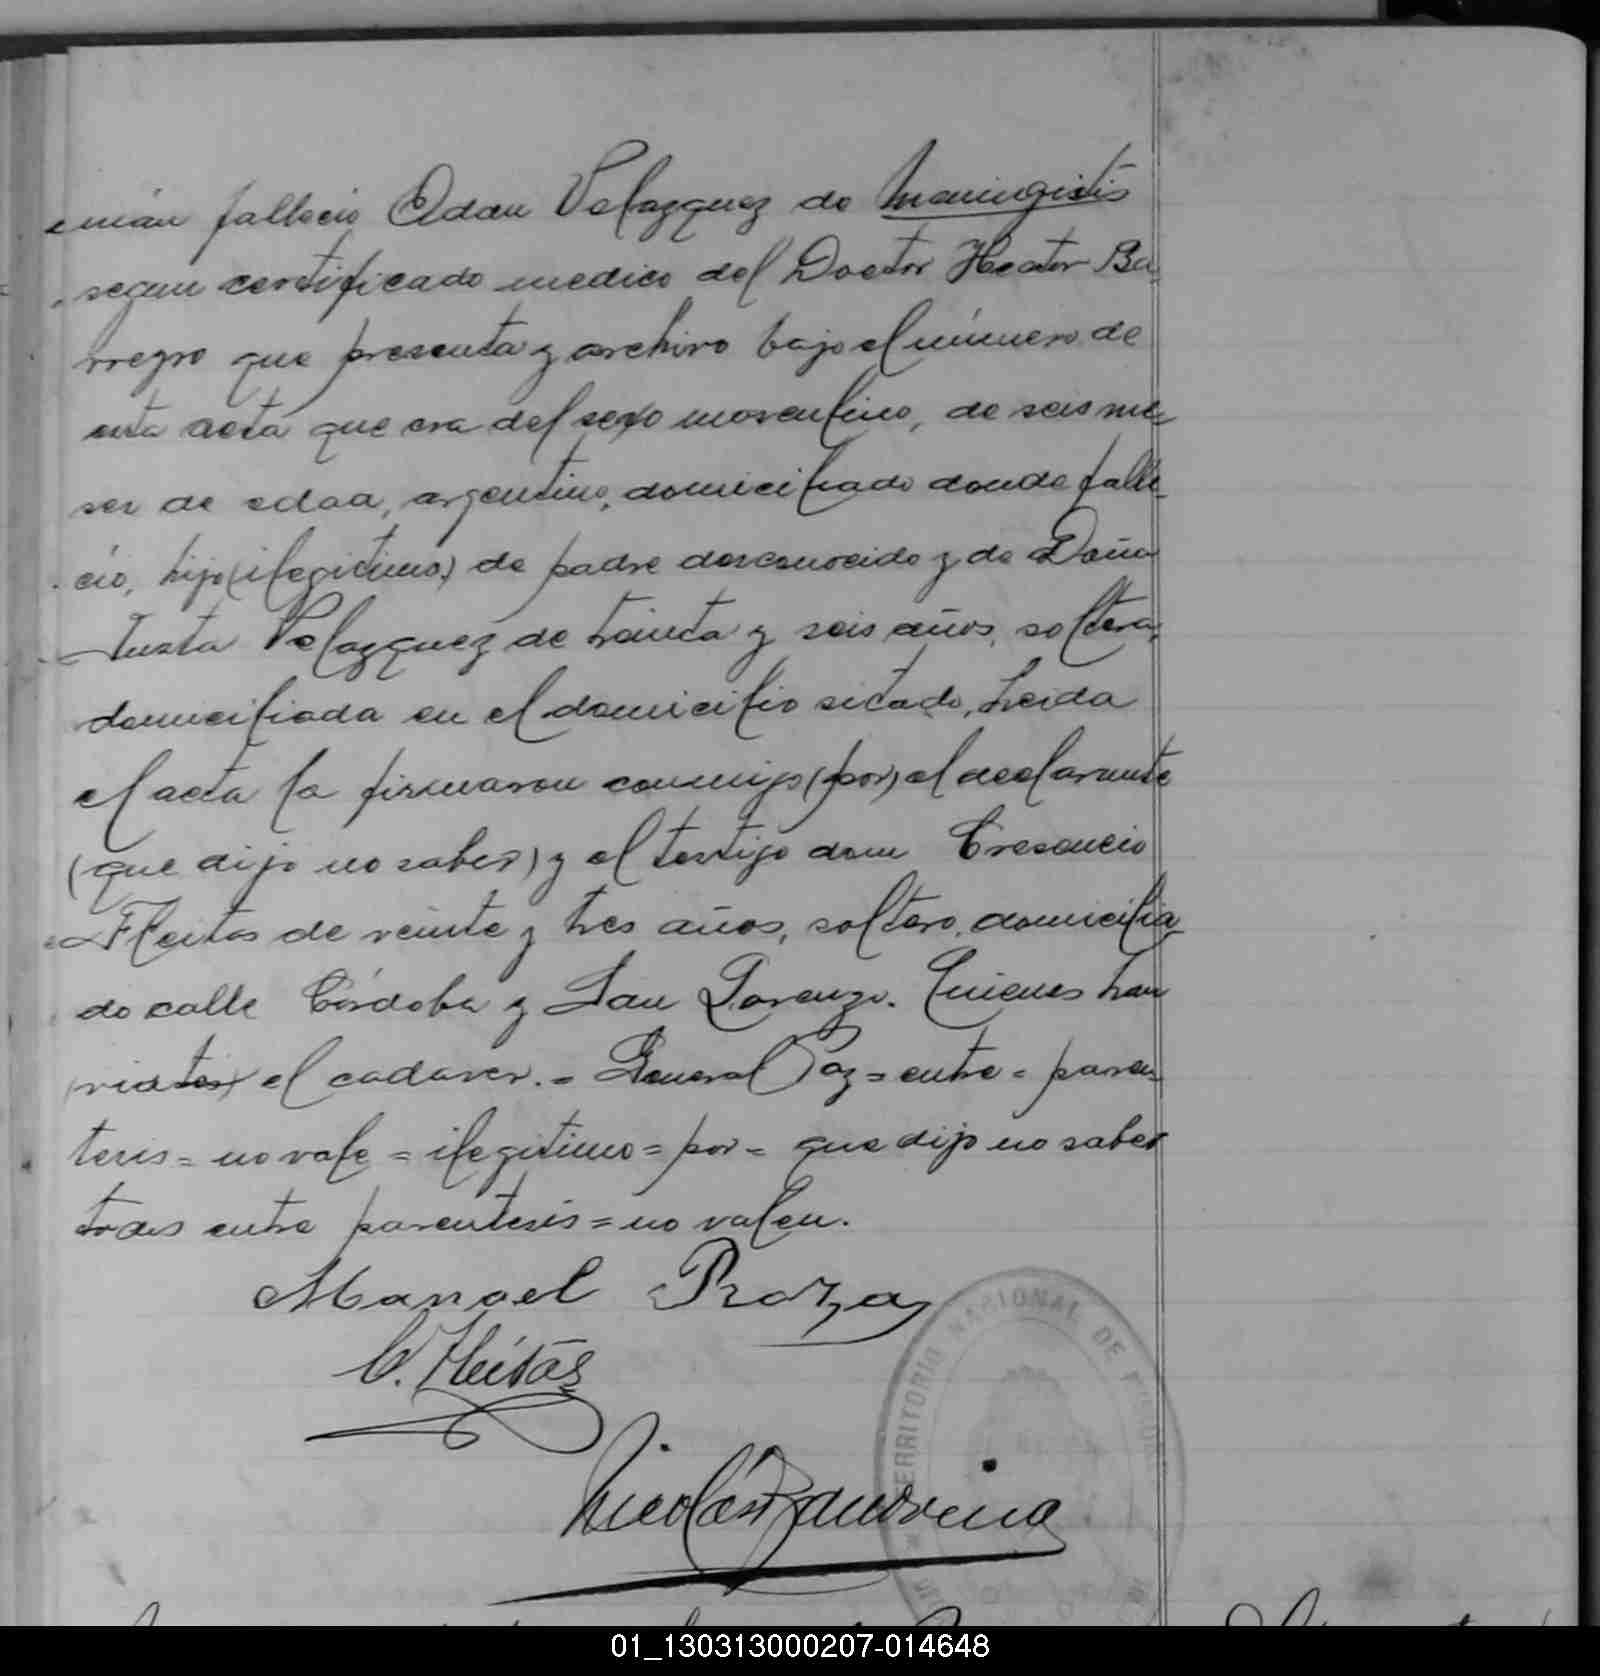 cumán fallecio Adan Velazquez de Meningistis
segun certificado medico del Doctor Hector Ba
rreyro que presenta y archivo bajo el número de
esta acta que era del sexo masculino, de seis me
ses de edad, argentino, domiciliado donde falle
ció, hijo (ilegitimo) de padre desconocido y de Doña
Justa Velazquez de treinta y seis años, soltera,
domiciliada en el domicilio sitado, Leida
el acta la firmaron conmigo (por) el declarante
(que dijo no saber) y el testigo don Cresencio
Fleitas de veinte y tres años, soltero, domicilia
do calle Córdoba y San Lorenzo. Quienes han
el cadaver. = General Paz = entre = paren
tesis = no vale = ilegitimo = por = que dijo no saber
entre parentesis = no valen.
Manoel
C. Fleitas
TERRITORIO NACIONAL DE
Nicolás
01_130313000207-014648